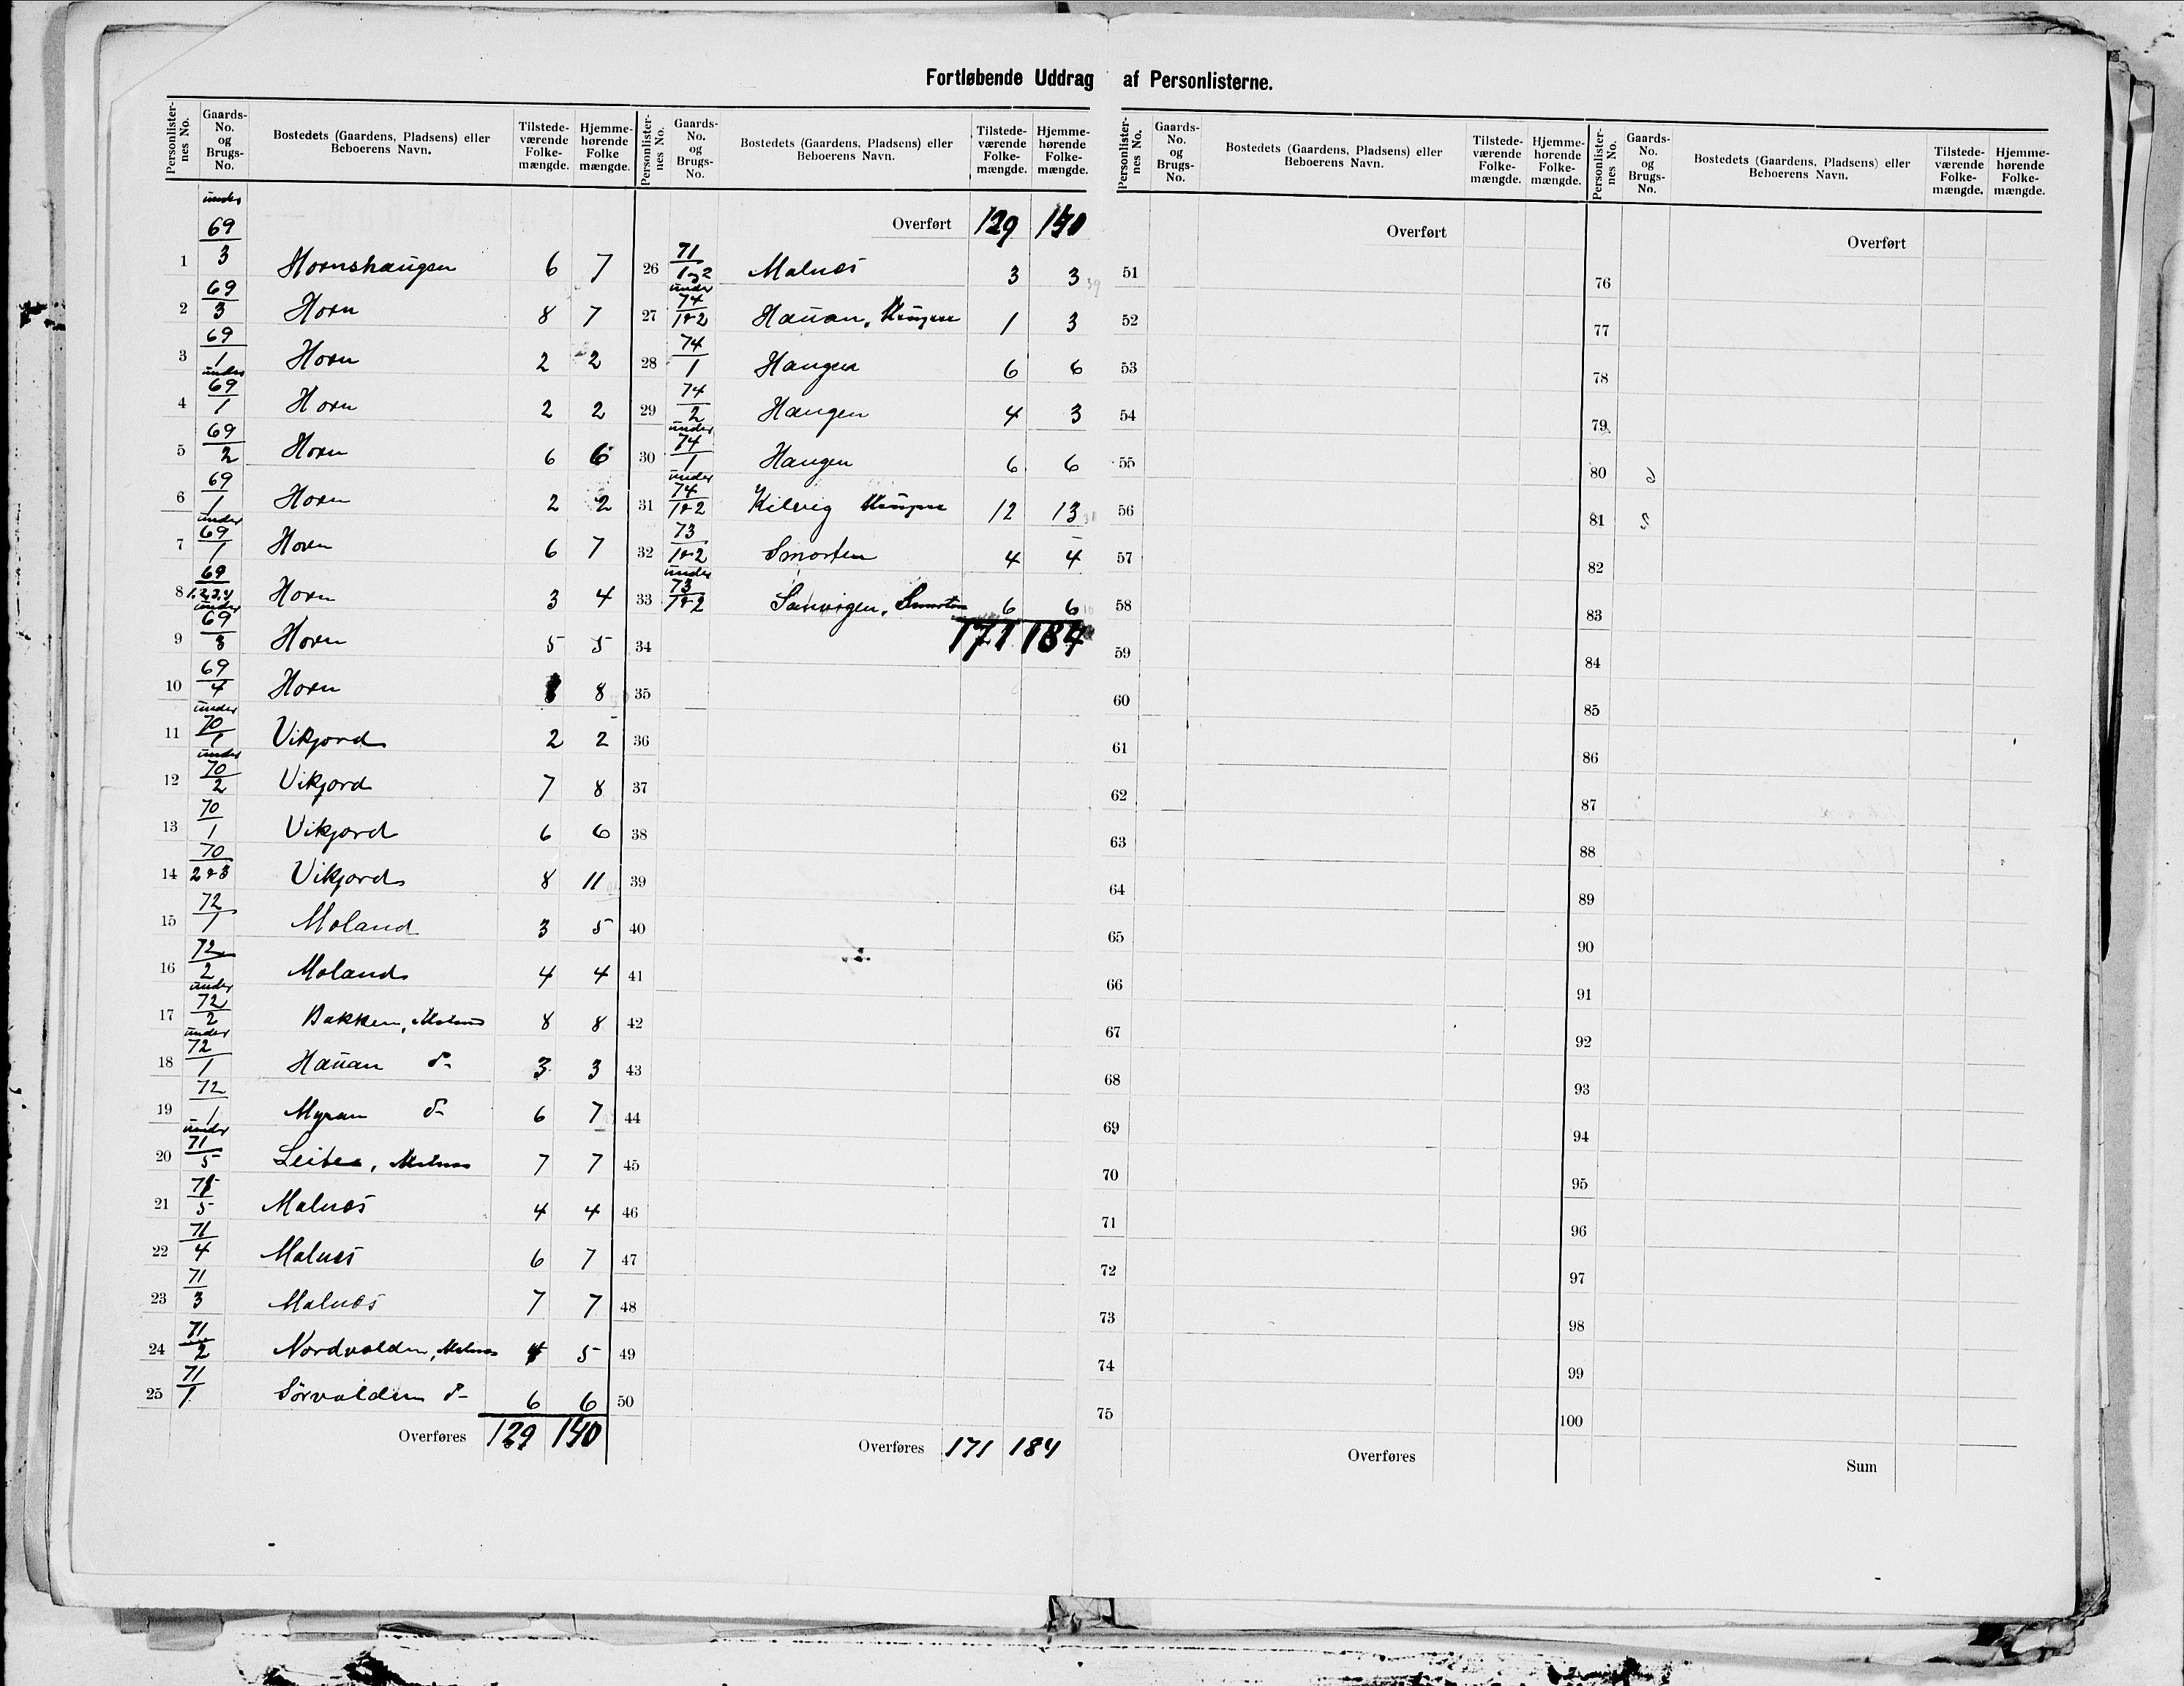 Fortløbende Uddrag af Personlisterne.
Personlister-nes No. | Gaards-No. og Brugs-No. | Bostedets (Gaardens, Pladsens) eller Beboerens Navn. | Tilstede-værende Folke-mængde. | Hjemme-hørende Folke mængde.
1 | under 69/3 | Hornshaugen | 6 | 7
2 | 69/3 | Horn | 8 | 7
3 | 69/1 | Horn | 2 | 2
4 | under 69/1 | Horn | 2 | 2
5 | 69/2 | Horn | 6 | 6
6 | 69/1 | Horn | 2 | 2
7 | under 69/1 | Horn | 6 | 7
8 | 69/1,2,3,4 | Horn | 3 | 4
9 | under 69/3 | Horn | 5 | 5
10 | 69/4 | Horn | 8 | 8
11 | under 70/1 | Vikjord | 2 | 2
12 | under 70/2 | Vikjord | 7 | 8
13 | 70/1 | Vikjord | 6 | 6
14 | 70/2&3 | Vikjord | 8 | 11
15 | 72/1 | Moland | 3 | 5
16 | 72/2 | Moland | 4 | 4
17 | under 72/2 | Bakken, Moland | 8 | 8
18 | under 72/1 | Hauan d- | 3 | 3
19 | 72/1 | Myran d- | 6 | 7
20 | under 71/5 | Leiten, Malnes | 7 | 7
21 | 71/5 | Malnes | 4 | 4
22 | 71/4 | Malnes | 6 | 7
23 | 71/3 | Malnes | 7 | 7
24 | 71/2 | Nordvolden, Malnes | 4 | 5
25 | 71/1 | Sørvolden d- | 6 | 6
Overføres | 129 | 140
Personlister-nes No. | Gaards-No. og Brugs-No. | Bostedets (Gaardens, Pladsens) eller Beboerens Navn. | Tilstede-værende Folke-mængde. | Hjemme-hørende Folke-mængde.
Overført | 129 | 140
26 | 71/1og2 | Malnes | 3 | 3
27 | under 74/1&2 | Hauan, | 1 | 3
28 | 74/1 | Haugen | 6 | 6
29 | 74/2 | Haugen | 4 | 3
30 | under 74/1 | Haugen | 6 | 6
31 | under 74/1&2 | Kilvig | 12 | 13
32 | 73/1&2 | Smorten | 4 | 4
33 | under 73/1&2 | Sanvigen, Smorten | 6 | 6
34 | 171 | 184
35
36
37
38
39
40
41
42
43
44
45
46
47
48
49
50
Overføres | 171 | 184
Personlister-nes No. | Gaards-No. og Brugs-No. | Bostedets (Gaardens, Pladsens) eller Beboerens Navn. | Tilstede-værende Folke-mængde. | Hjemme-hørende Folke-mængde.
Overført
51
52
53
54
55
56
57
58
59
60
61
62
63
64
65
66
67
68
69
70
71
72
73
74
75
Overføres
Personlister-nes No. | Gaards-No. og Brugs-No. | Bostedets (Gaardens, Pladsens) eller Beboerens Navn. | Tilstede-værende Folke-mængde. | Hjemme-hørende Folke-mængde.
Overført
76
77
78
79
80
81
82
83
84
85
86
87
88
89
90
91
92
93
94
95
96
97
98
99
100
Sum